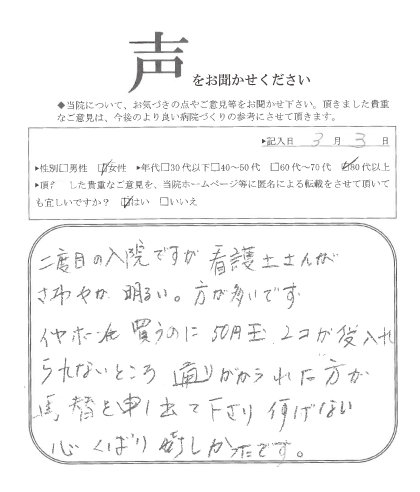 声をお聞かせください
◆当院について、お気づきの点やご意見等をお聞かせ下さい。頂きました貴重
なご意見は、今後のより良い病院づくりの参考にさせて頂きます。
▶記入日 3 月 3 日
▶性別□男性 ☑女性 ▶年代□30代以下□40～50代 □60代～70代 ☑80代以上
▶頂? した貴重なご意見を、当院ホームページ等に匿名による転載をさせて頂いて
も宜しいですか? ☑はい □いいえ
二度目の入院ですが 看護士さんが
さわやか 明るい。方が多いです
イヤホーン 買うのに 50円玉 2コが 入れ
られないところ 通りがかられた方が
両替を申し出て下さり 何げない
心くばり 嬉しかったです。